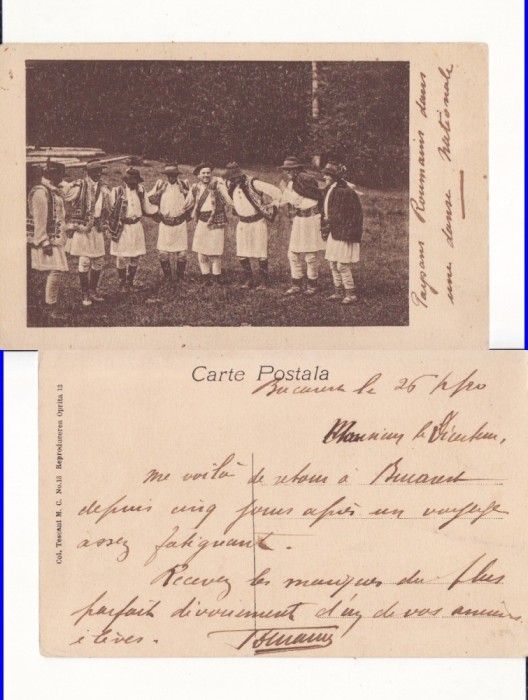 Paysans Roumains dans
une danse nationale
Carte Postala
Col. Tescani M. C. No.15 Reproducerea Oprita 13
Bucarest le 26
Monsieur le Directeur,
me voilà de retour à Bucarest
depuis cinq jours après un voyage
assez fatiguant.
Recevez les marques du plus
parfait dévouement d'un de vos anciens
élèves.